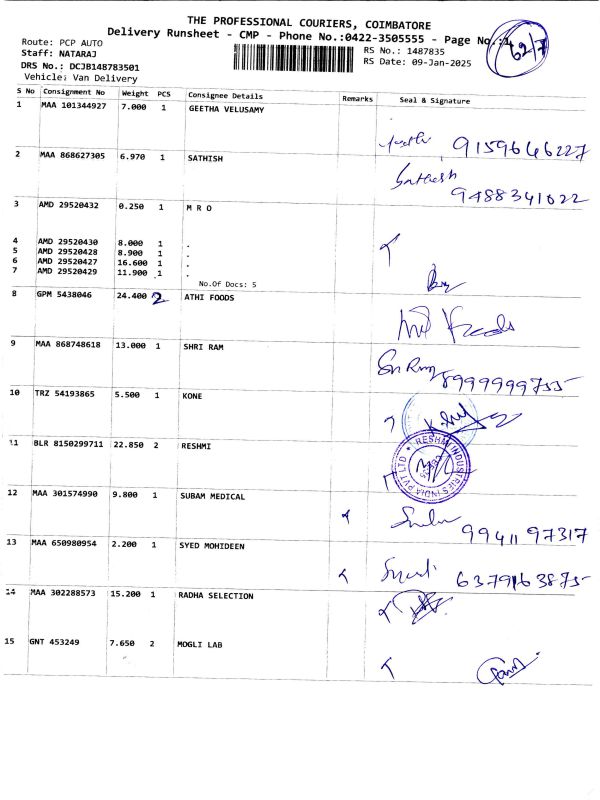 THE PROFESSIONAL COURIERS, COIMBATORE
Delivery Runsheet - CMP - Phone No.:0422-3505555 - Page No.:1
62/7
Route: PCP AUTO
Staff: NATARAJ
RS No.: 1487835
DRS No.: DCJB148783501
RS Date: 09-Jan-2025
Vehicle: Van Delivery
S No Consignment No Weight PCS Consignee Details Remarks Seal & Signature
1 MAA 101344927 7.000 1 GEETHA VELUSAMY
9159646227
2 MAA 868627305 6.970 1 SATHISH Sathish
9488341022
3 AMD 29520432 0.250 1 M R O
4 AMD 29520430 8.000 1 .
5 AMD 29520428 8.900 1 .
6 AMD 29520427 16.600 1 .
7 AMD 29520429 11.900 1 .
No.Of Docs: 5
8 GPM 5438046 24.400 2 ATHI FOODS
Foods
9 MAA 868748618 13.000 1 SHRI RAM Sri Ram
8999999755
10 TRZ 54193865 5.500 1 KONE
11 BLR 8150299711 22.850 2 RESHMI RESHMI INDUSTRIES INDIA PVT LTD
12 MAA 301574990 9.800 1 SUBAM MEDICAL
9941197317
13 MAA 650980954 2.200 1 SYED MOHIDEEN
6379163875
14 MAA 302288573 15.200 1 RADHA SELECTION
15 GNT 453249 7.650 2 MOGLI LAB